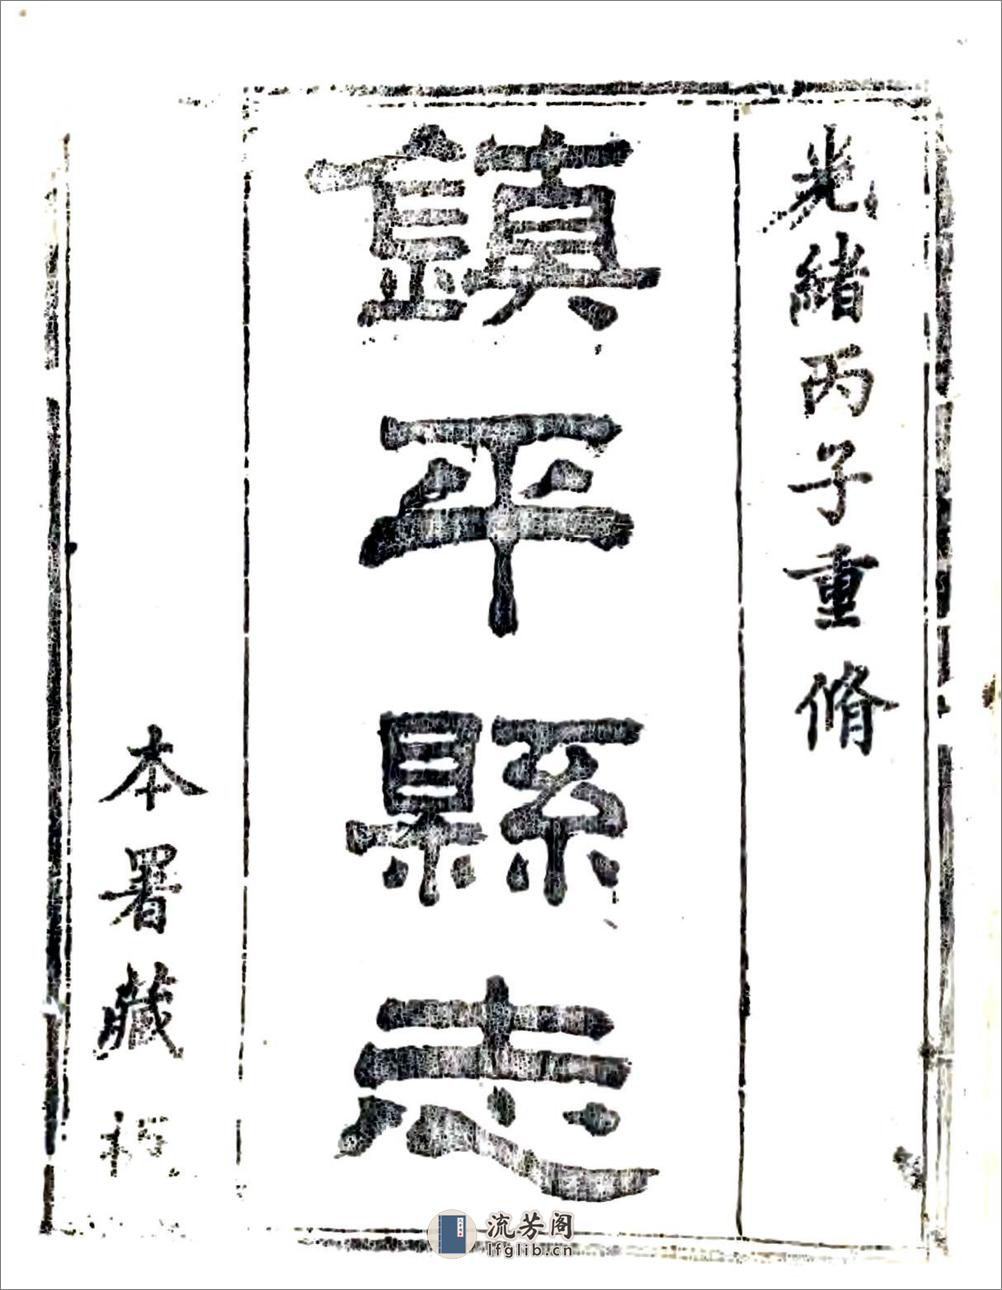 光緒丙子重脩
鎮平縣志
本署藏板
流芳阁
lfglib.cn